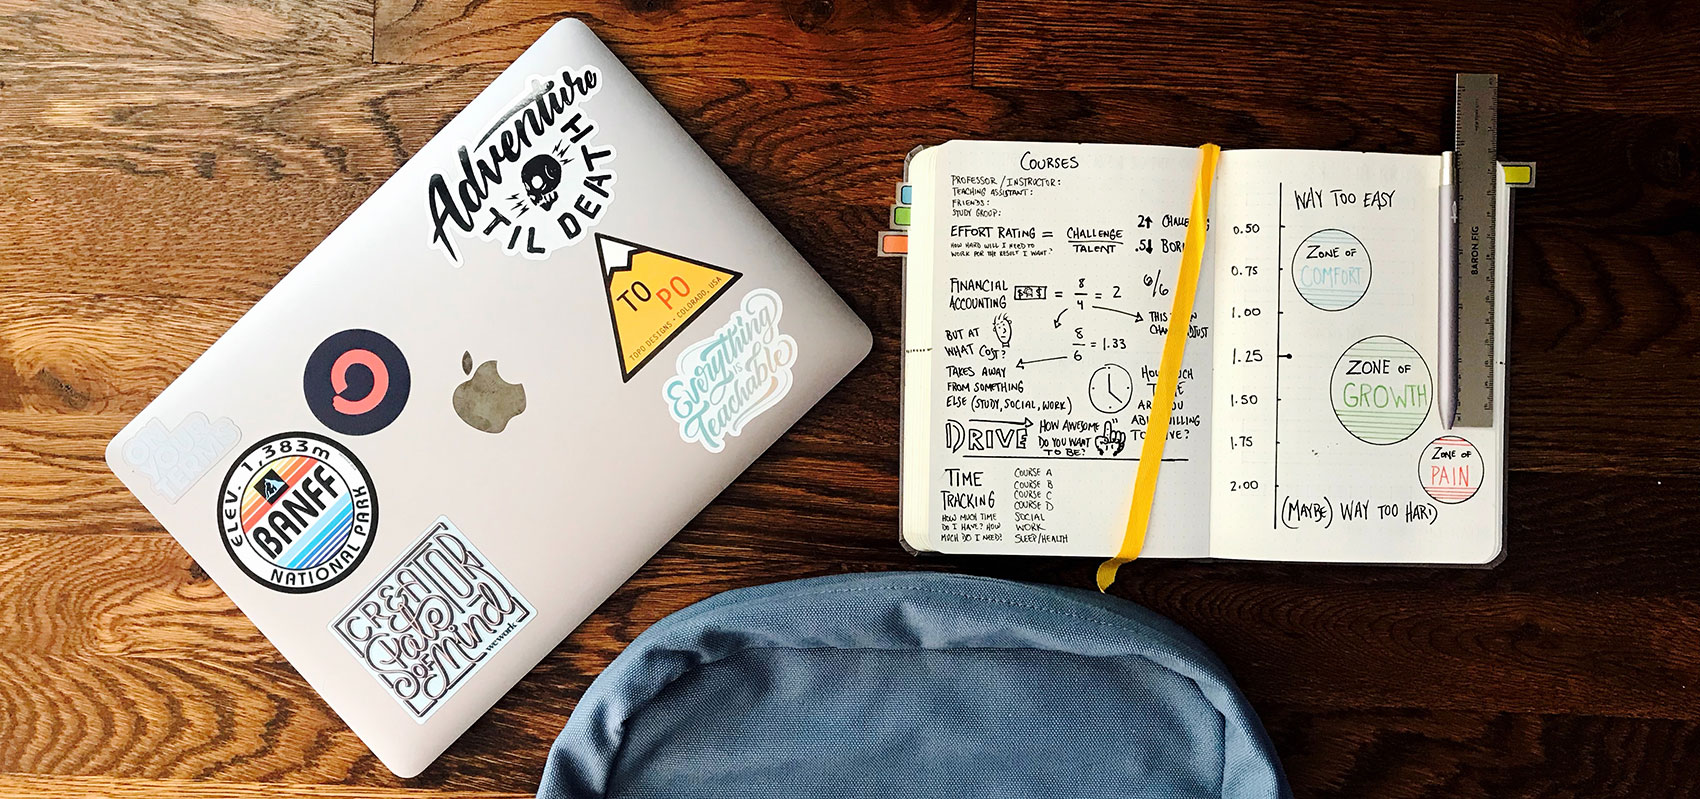 Adventure
TIL DEATH
TO
PO
TOPO DESIGNS • COLORADO, USA
Everything
IS
Teachable
ON
YOUR
TERMS
ELEV. 1,383m
BANFF
NATIONAL PARK
CREATOR
State
OF Mind
wework
COURSES
PROFESSOR/INSTRUCTOR:
TEACHING ASSISTANT:
FRIENDS:
STUDY GROUP:
EFFORT RATING = CHALLENGE
TALENT
HOW HARD WILL I NEED TO
WORK FOR THE RESULT I WANT?
2↑
.5↓
FINANCIAL
ACCOUNTING
= 8
4
= 2
6/6
THIS
BUT AT
WHAT COST?
8
6
= 1.33
TAKES AWAY
FROM SOMETHING
ELSE (STUDY, SOCIAL, WORK)
HOW
ARE YOU
DRIVE
HOW AWESOME
DO YOU WANT
TO BE?
TIME
TRACKING
HOW MUCH TIME
DO I HAVE? HOW
MUCH DO I NEED?
COURSE A
COURSE B
COURSE C
COURSE D
SOCIAL
WORK
SLEEP/HEALTH
WAY TOO EASY
0.50
0.75
1.00
1.25
1.50
1.75
2.00
ZONE OF
COMFORT
ZONE OF
GROWTH
ZONE OF
PAIN
(MAYBE) WAY TOO HARD
BARON FIG